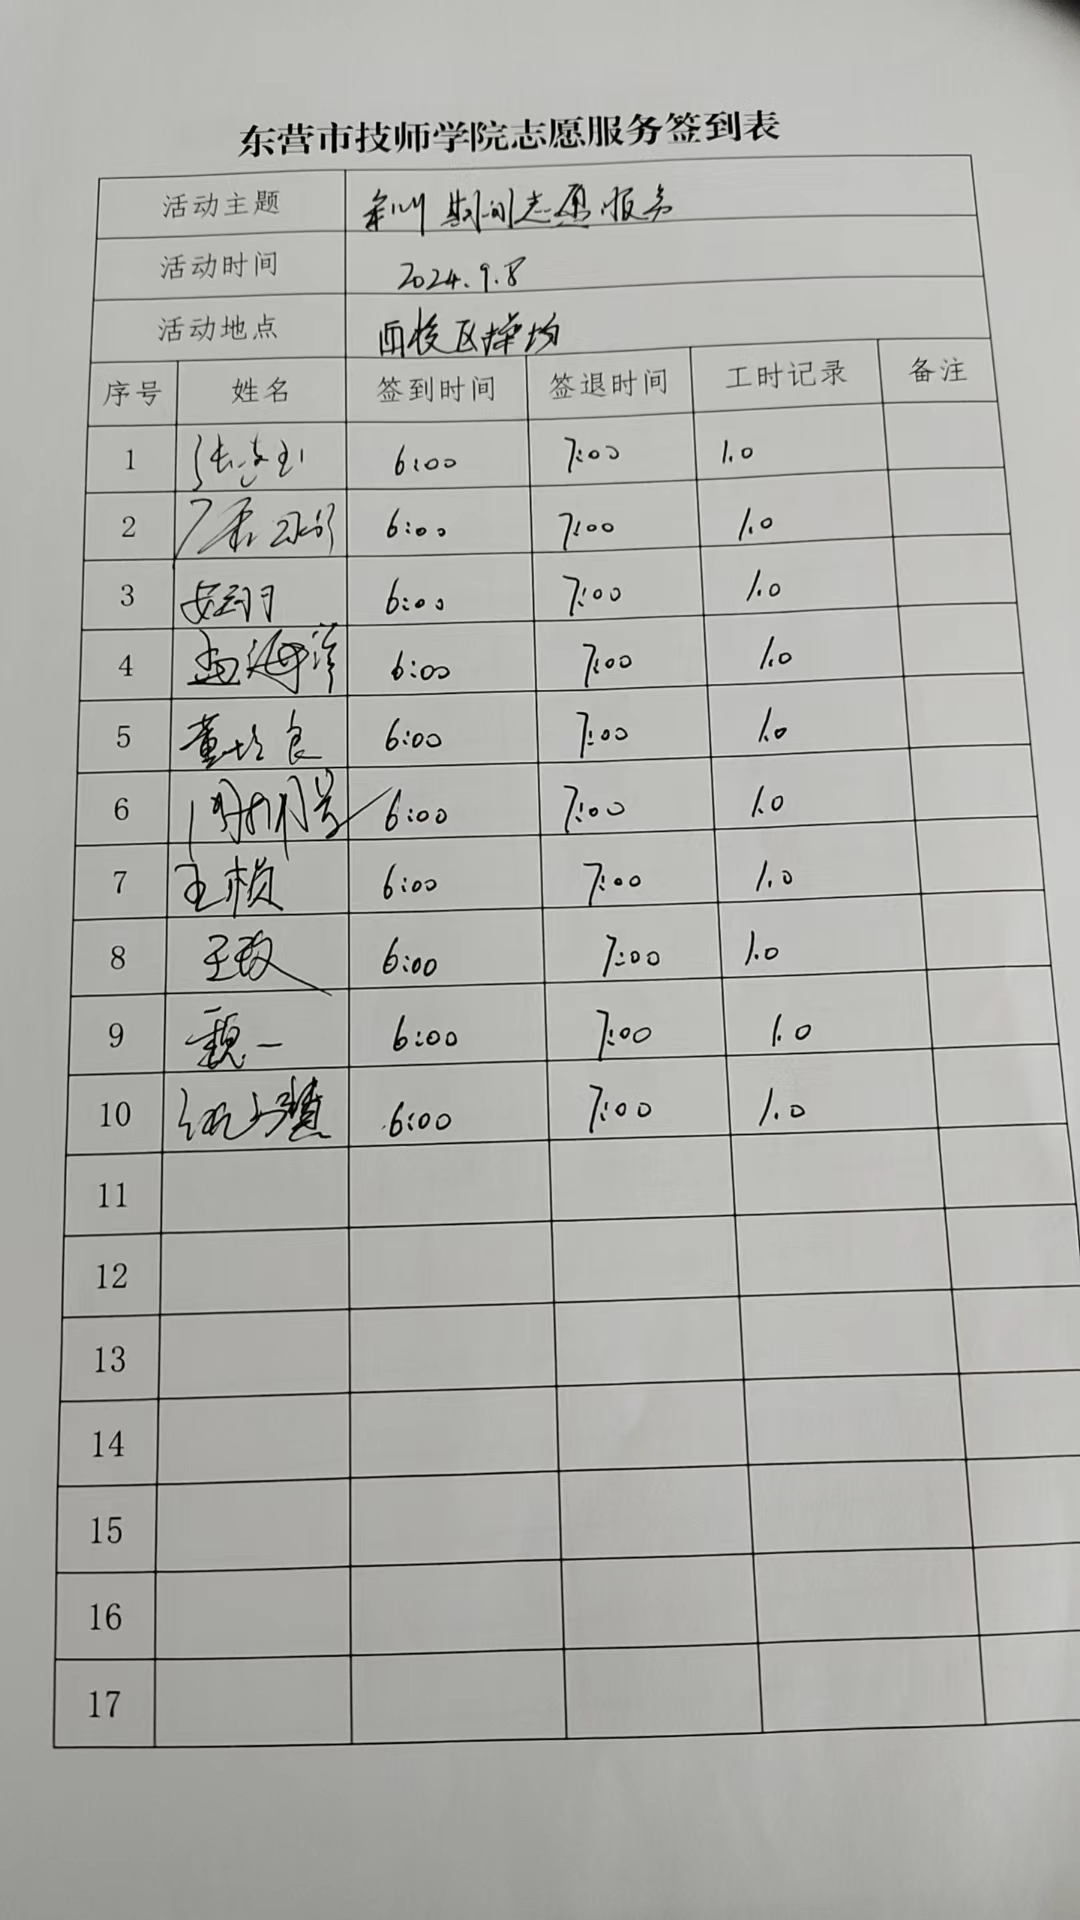 东营市技师学院志愿服务签到表
活动主题 军训期间志愿服务
活动时间 2024.9.8
活动地点 西校区操场
序号 姓名 签到时间 签退时间 工时记录 备注
1 6:00 7:00 1.0
2 6:00 7:00 1.0
3 6:00 7:00 1.0
4 孟海洋 6:00 7:00 1.0
5 董 良 6:00 7:00 1.0
6 6:00 7:00 1.0
7 王桢 6:00 7:00 1.0
8 王政 6:00 7:00 1.0
9 魏一 6:00 7:00 1.0
10 6:00 7:00 1.0
11
12
13
14
15
16
17